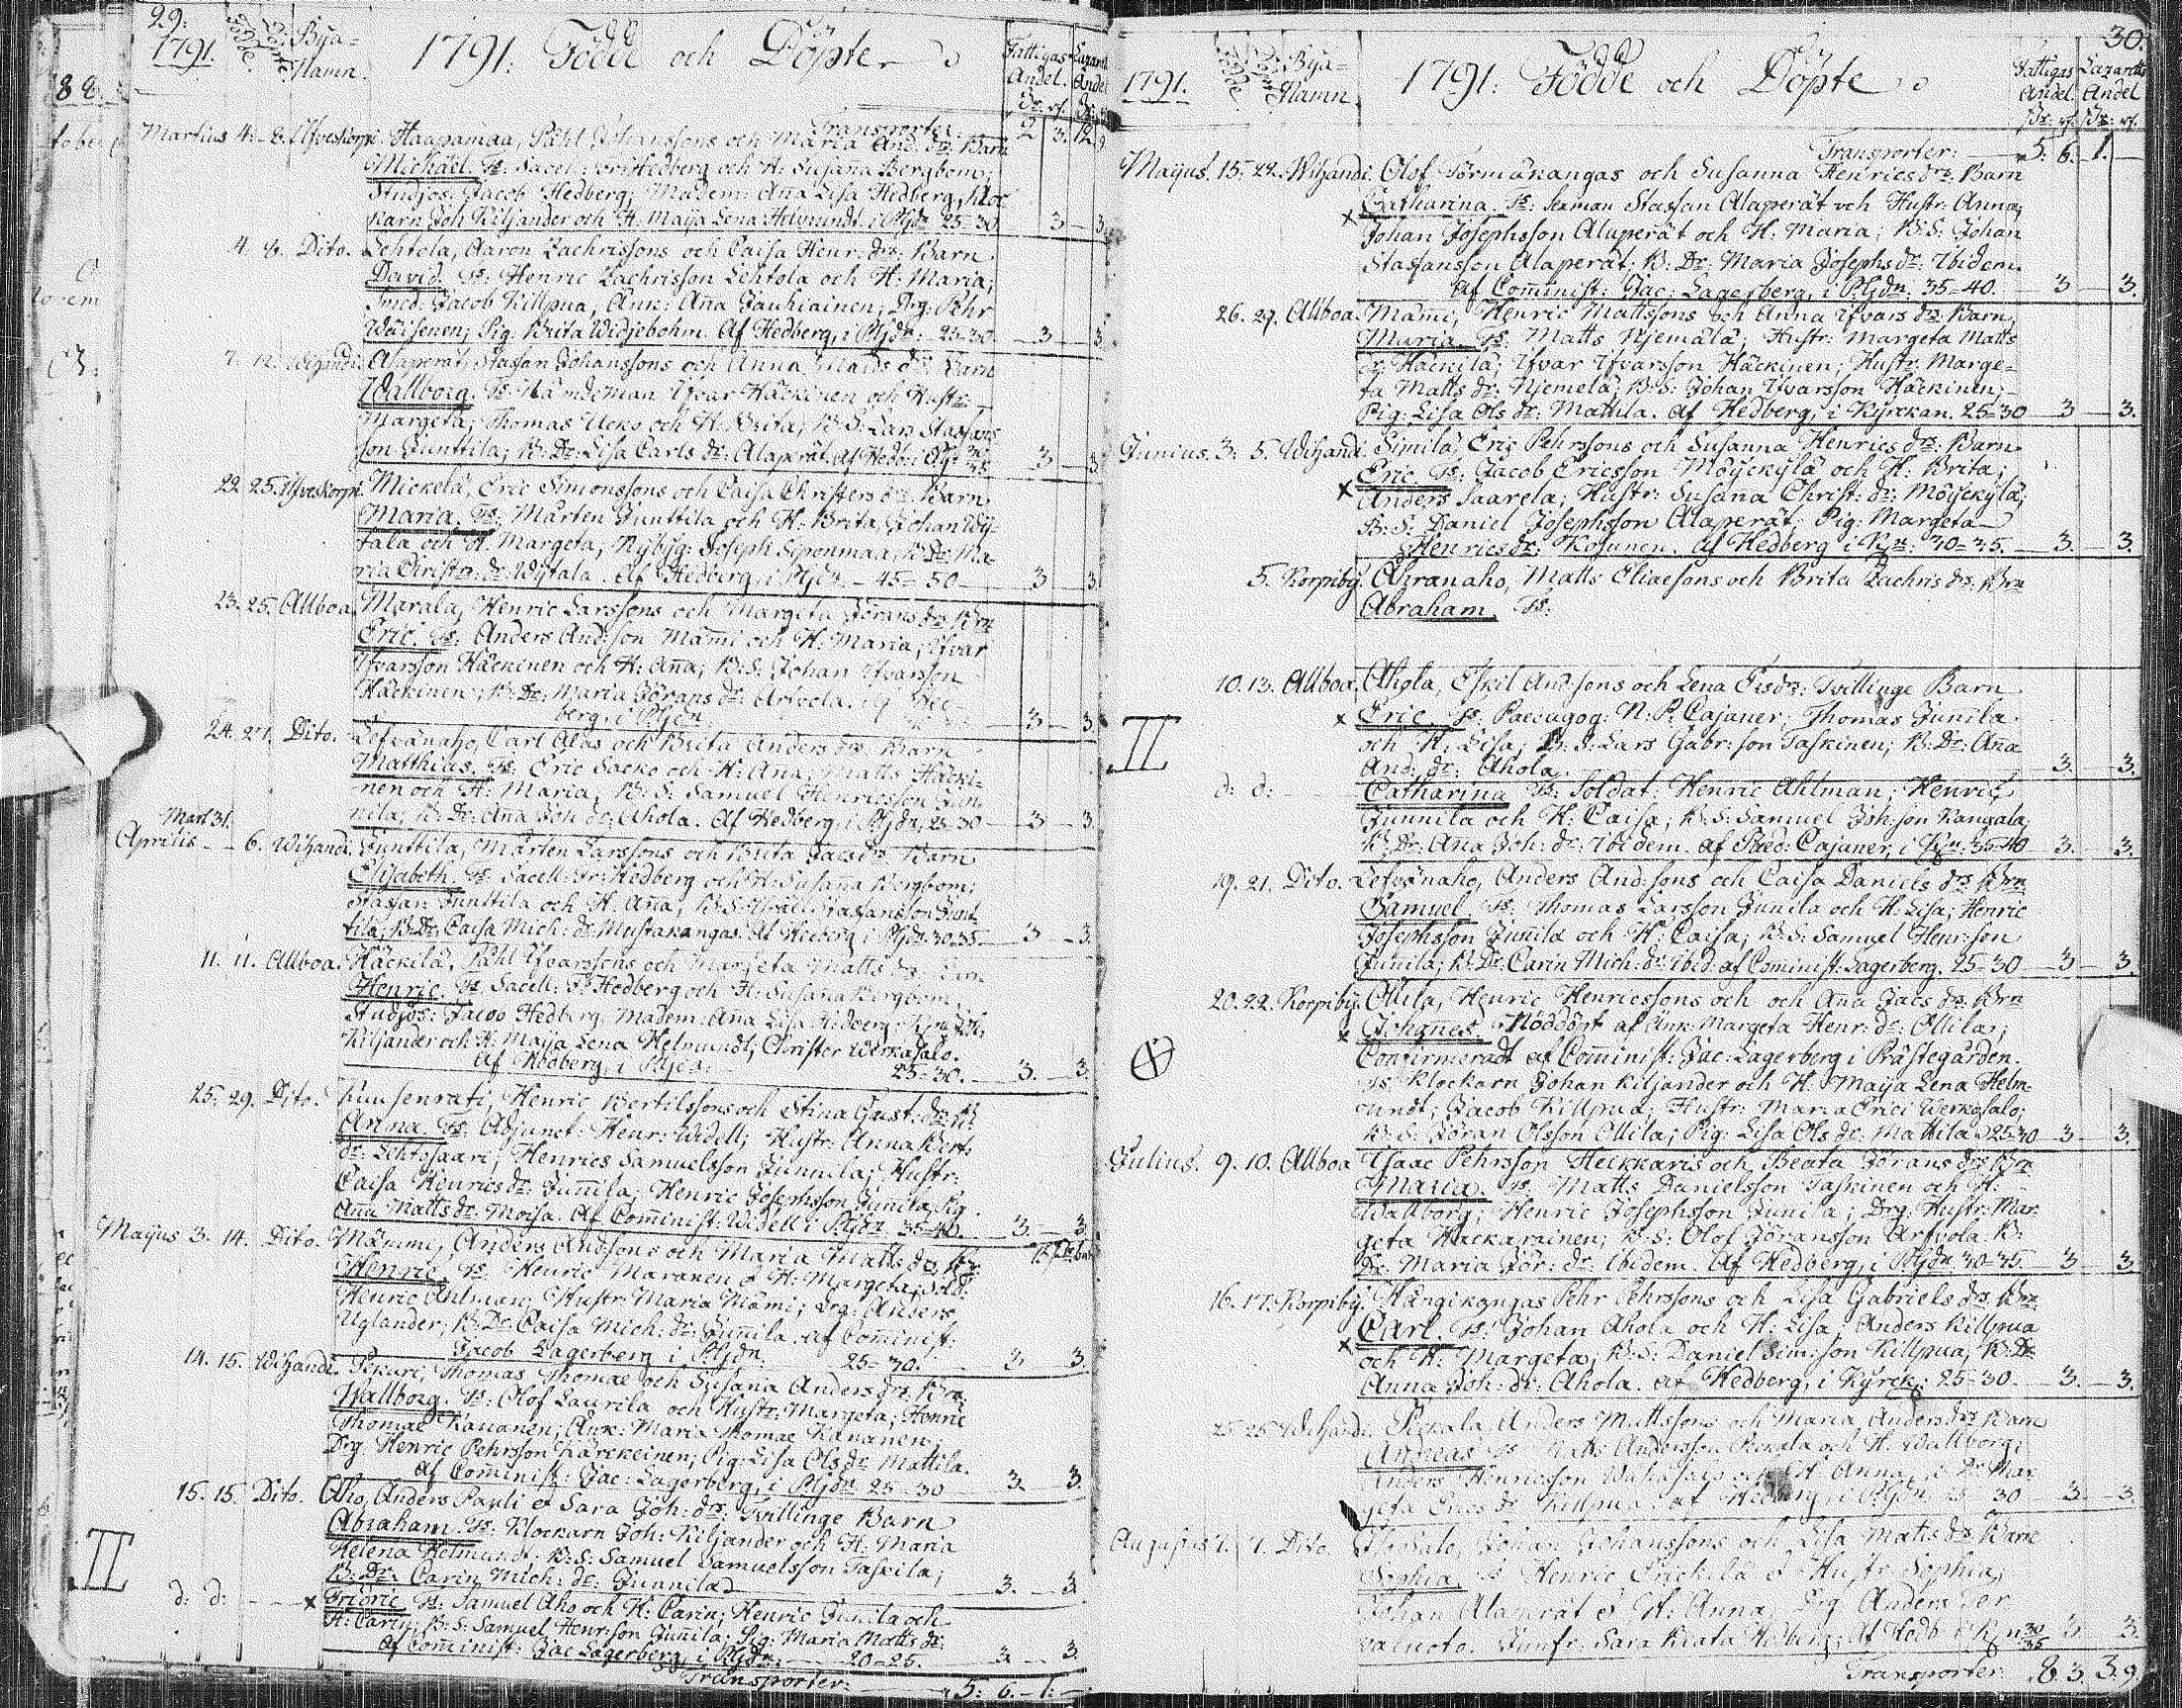 29.
1791. Födde. Döpte. Bya-Namn. 1791: Födde och Döpte. Fattigas Andel. Lazarets Andel
Transporter: 2 3. 12. 9
Martius 4.-8. Haapamaa, Påhl Johanssons och Maria And: drs Barn
Michaël. Ts: Sacell: Hedberg och H: Susaña Bergbom;
Studios: Jacob Hedberg; Madem: Aña Lisa Hedberg, Kloc
karn Joh Kiljander och H. Maija Lena Helmundt. i Pljdn 25-30. 3 3.
4. 8. Dito. Lehtola, Aaron Zachrissons och Caisa Henr: drs: Barn
David. Ts: Henric Zachrisson Lehtola och H: Maria;
Smed: Jacob Killpua, Änk: Aña Jauhiainen; Drg: Pehr
Wäisenen; Pig. Brita Widjebohm. Af Hedberg, i Pljdn: 25-30. 3 3.
7. 12. Wihandi. Alaperät, Stafan Johanssons och Anna Matts drs Barn
Wallborg. Ts: Nämdeman Ifvar Häckinen och Hustr:
Margeta; Thomas Ucko och H: Brita; B: S: Lars Stafans
son Junttila; B: Dr: Lisa Carls dr: Alaperät. Af Hedb: i Plj: 30 35 3 3.
22. 25. Ulfveskorpi. Mickelä, Eric Simonssons och Caisa Christers drs Barn
Maria. Ts: Mårten Junttila och H: Brita, Johan Wij-
tala och H. Margeta; Nybyg: Joseph Siponmaa; B: Dr: Ma-
ria Christrs: dr: Wijtala. Af Hedberg, i Pljdn. 45-50 3 3.
23. 25. Allboa. Marala, Henric Larssons och Margeta Jörans drs Brn
Eric. Ts: Anders And:son Mämi och H: Maria; Ifvar
Ifvarsson Häckinen och H: Aña; B: S: Johan Ifvarsson
Häckinen; B: Dr: Maria Jörans dr: Arfvola. Af Hed-
berg, i Pljdn. 3 3.
24. 27. Dito. Lefvänaho, Carl Olas och Brita Anders drs Barn
Matthias. Ts: Eric Sacko och H: Aña, Matts Häcki-
nen och H: Maria; B: S: Samuel Henricsson Jun-
nila; B: Dr: Aña Joh: dr: Ahola. Af Hedberg, i Pljdn, 25-30 3 3.
Mart 31.
Aprilis - 6. Wihandi. Junttila, Mårten Larssons och Brita Jacs drs Barn
Elisabeth. Ts: Sacell: Hedberg och H: Susaña Bergbom;
Stafan Junttila och H. Aña; B: S: Stafansson Junt
tila; B: Dr: Caisa Mich: dr: Mustakangas. Af Hedberg i Pljdn. 30-35. 3 3.
11. 11. Allboa. Häckilä, Påhl Ifvarssons och Margeta Matts drs Barn
Henric. Ts. Sacell: Hedberg och H: Susaña Bergbom;
Studios: Jacob Hedberg, Madem: Aña Lisa Hedberg; Joh:
Kiljander och H: Maija Lena Helmundt; Christer Werkasalo.
Af Hedberg, i Pljdn. 25-30. 3. 3.
25. 29. Dito. Henric Bertilssons och Stina Gust: drs: B:
Anna. Ts: Adjunct: Henr: Widell; Hustr: Anna Bert:
dr: Lehtosaari; Henrics Samuelsson Junnila; Hustr:
Caisa Henrics dr: Juñila; Henric Josephsson Juñila; Pig
Aña Matts dr: Moisa. Af Comminist: Widell i Pljdn 35-40. 3. 3.
Maijus 3. 14. Dito. Mämmi, Anders And:sons och Maria Matts drs Br:
Henric. Ts: Henric Maranen & H: Margeta; Sold:
Henric Ahlman; Hustr: Maria Mämi; Drg: Anders
Uglander; B: Dr: Caisa Mich: dr: Juñila. af Cominist:
Jacob Lagerberg i Pljdn. 25-30. 3 3.
14. 15. Wihandi. Pekuri, Thomas Thomae och Susaña Anders drs Brn:
Wallborg. Ts: Olof Laurila och Hustr: Margeta; Henric
Thomae Kananen; Änk: Maria Thomae Kananen;
Drg Henric Pehrsson Kärckeinen; Pig: Lisa Ols dr: Mattila.
Af Cominist: Jac: Lagerberg, i Pljdn 25-30 3. 3.
15. 15. Dito. Aho, Anders Pauli & Sara Joh: drs: Tvillinge Barn
II Abraham. Ts: Klockarn Joh: Kiljander och H: Maria
Helena Helmundt. B: S: Samuel Samuelsson Taskila;
B: Dr: Carin Mich: dr: Junnila 3. 3
d: d: x Fridric. Ts: Samuel Aho och H: Carin; Henric Juñila och
H: Carin; B: S: Samuel Henr:son Juñila; Pig: Maria Matts dr:
Af Cominist: Jac Lagerberg, i Pljdn. 20-25. 3 3.
Transporter: 5: 6. 1:
30.
1791. Födde Döpte Bya-Namn. 1791: Födde och Döpte. Fattigas Andel. Lazaretts Andel
Transporter: 5: 6. 1.
Maijus. 15. 22. Wihandi. Olof Törmäkangas och Susanna Henrics drs Barn
x Catharina. Ts: Stafan Alaperät och Hustr: Anna;
Johan Josephsson Alaperät och H: Maria; B: S: Johan
Stafansson Alaperät: B: Dr: Maria Josephs dr: Ibidem.
Af Cominist: Jac: Lagerberg, i Pljdn, 35-40. 3 3.
26. 29. Allboa. Mämi, Henric Mattssons och Anna Ifvars drs Barn,
Maria. Ts: Matts Njemälä; Hustr: Margeta Matts
dr Häckilä; Ifvar Ifvarsson Häckinen; Hustr: Marge-
ta Matts dr: Njemelä; B: S: Johan Ifvarsson Häckinen;
Pig: Lisa Ols dr: Mattila. Af Hedberg, i Kyrckan. 25-30 3 3.
Junius. 3. 5. Wihandi. Similä, Eric Pehrssons och Susanna Henrics drs: Barn
x Eric. Ts: Jacob Ericsson Möijckylä och H: Brita;
Anders Saarela; Hustr: Susana Christ: dr: Möijckylä;
B: S: Daniel Josephsson Alaperät; Pig: Margeta
Henrics dr: Kosunen. Af Hedberg i Kyn: 30-35. 3. 3.
5. Korpiby. Ahranaho, Matts Eliaesons och Brita Zachris drs. Brn
Abraham. Ts:
10. 13. Allboa. Ahola, Eskil And:sons och Lena Ersdrs: Tvillinge Barn
II x Eric. Ts: Paedagog: N: P: Cajaner; Thomas Juñila
och H: Lisa; B: S: Lars Gabr:son Taskinen; B: Dr: Aña
And: dr: Ahola. 3. 3.
d: d: Catharina Ts: Soldat: Henric Ahlman; Henric
Junnila och H: Caisa; B: S: Samuel Joh:son Kangala;
B: Dr: Aña Joh: dr: Ibidem. af Paed: Cajaner, i Kyn: 35-40 3. 3.
19. 21. Dito. Lefvänaho, Anders And:sons och Caisa Daniels drs Brn
Samuel. Ts: Thomas Larsson Juñila och H: Lisa; Henric
Josephsson Juñila och H: Caisa; B: S: Samuel Henr:son
Juñila; B: Dr: Carin Mich: dr: Ibid: af Cominist: Lagerberg. 25-30 3 3.
20. 22. Korpiby. Ollila, Henric Henricssons och och Aña Jacs drs. Brn
x Johannes. Nöddöpt af Änk: Margeta Henr: dr: Ollila;
Confirmeradt af Cominist: Jac: Lagerberg i Prästegården.
Ts: Klockarn Johan Kiljander och H: Maija Lena Helm-
undt; Jacob Killpua; Hustr: Maria Erici Werkasalo;
B: S: Jöran Olsson Ollila; Pig: Lisa Ols dr: Mattila 25-30 3 3.
Julius. 9. 10. Allboa Isaac Pehrsson Heickkaris och Beata Jörans drs Brn
Maria. Ts: Matts Danielsson Taskinen och H:
Wallborg; Henric Josephsson Junila; Drg: Hustr: Mar-
geta Hackarainen; B: S: Olof Jöransson Arfvola. B:
Dr: Maria Jör: dr: Ibidem. Af Hedberg, i Pljdn. 30-35. 3 3.
16. 17. Korpiby. Hängikangas Pehr Pehrssons och Lisa Gabriels drs Brn:
x Carl. Ts: Johan Ahola och H: Lisa, Anders Killpua
och H: Margeta; B: S: Daniel Sim:son Killpua; B: Dr
Anna Joh: dr: Ahola. af Hedberg, i Kyrck: 25-30. 3. 3.
25. 26. Wihandi. Pickala, Anders Mattssons och Maria Anders drs Barn
Andreas Ts Matts Andersson Pickala och H. Wallborg;
Anders Henricsson och H Anna, B Dr Mar
geta Erics dr Killpua. af Hedberg, i Pljdn: 25-30 3. 3.
Augustus 7. 7. Dito. Johan Johanssons och Lisa Matts drs. Barn
Sophia. Ts Henric Erickilä & Hustr Sophia;
Johan Alaperät & H: Anna; Drg Anders
Jumfr: Sara Beata Hedberg; Af Hedb i Kyn 30 35 3 3.
Transporter: 8 3. 3. 9.